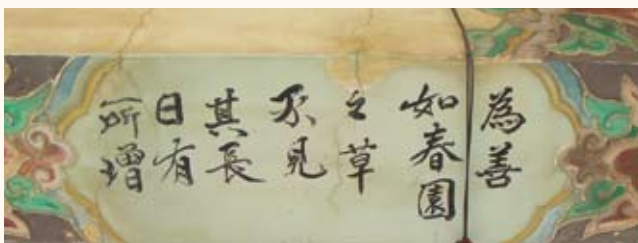 為善
如春園
之草
不見
其長
日有
所增